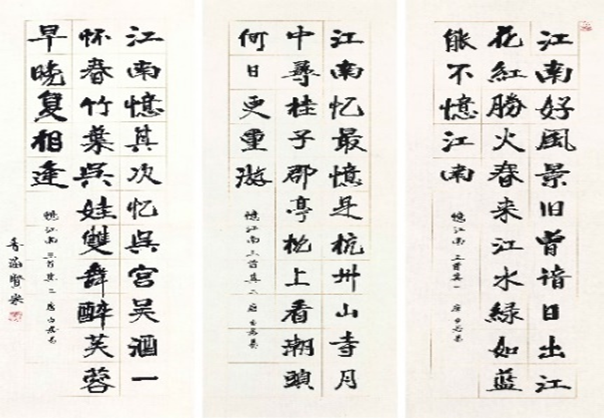 江南好風景旧曾諳日出江
花紅勝火春来江水緑如藍
能不憶江南
憶江南三首其一 唐白居易
江南忆最憶是杭州山寺月
中尋桂子郡亭枕上看潮頭
何日更重游
憶江南三首其二 唐白居易
江南憶其次忆吳宫吴酒一
杯春竹葉吳娃雙舞醉芙蓉
早晚复相逢
憶江南三首其三 唐白居易